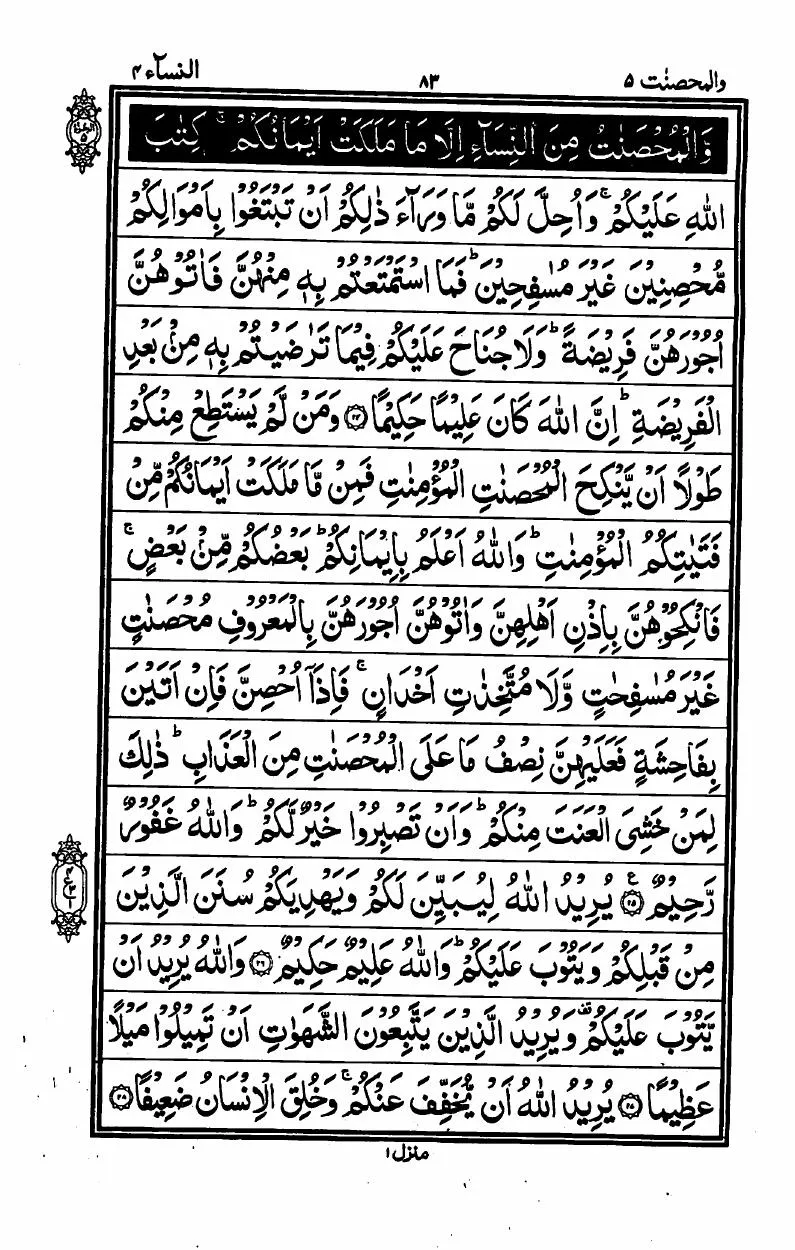 والمحصنٰت ۵
۸۳
النسآء ۴
الجزء ۵
وَّالْمُحْصَنٰتُ مِنَ النِّسَآءِ اِلَّا مَا مَلَكَتْ اَيْمَانُكُمْ ۚ كِتٰبَ
اللّٰهِ عَلَيْكُمْ ۚ وَاُحِلَّ لَكُمْ مَّا وَرَآءَ ذٰلِكُمْ اَنْ تَبْتَغُوْا بِاَمْوَالِكُمْ
مُّحْصِنِيْنَ غَيْرَ مُسٰفِحِيْنَ ؕ فَمَا اسْتَمْتَعْتُمْ بِهٖ مِنْهُنَّ فَاٰتُوْهُنَّ
اُجُوْرَهُنَّ فَرِيْضَةً ؕ وَلَا جُنَاحَ عَلَيْكُمْ فِيْمَا تَرٰضَيْتُمْ بِهٖ مِنْۢ بَعْدِ
الْفَرِيْضَةِ ؕ اِنَّ اللّٰهَ كَانَ عَلِيْمًا حَكِيْمًا ۲۴ وَمَنْ لَّمْ يَسْتَطِعْ مِنْكُمْ
طَوْلًا اَنْ يَّنْكِحَ الْمُحْصَنٰتِ الْمُؤْمِنٰتِ فَمِنْ مَّا مَلَكَتْ اَيْمَانُكُمْ مِّنْ
فَتَيٰتِكُمُ الْمُؤْمِنٰتِ ؕ وَاللّٰهُ اَعْلَمُ بِاِيْمَانِكُمْ ؕ بَعْضُكُمْ مِّنْۢ بَعْضٍ ۚ
فَانْكِحُوْهُنَّ بِاِذْنِ اَهْلِهِنَّ وَاٰتُوْهُنَّ اُجُوْرَهُنَّ بِالْمَعْرُوْفِ مُحْصَنٰتٍ
غَيْرَ مُسٰفِحٰتٍ وَّلَا مُتَّخِذٰتِ اَخْدَانٍ ۚ فَاِذَاۤ اُحْصِنَّ فَاِنْ اَتَيْنَ
بِفَاحِشَةٍ فَعَلَيْهِنَّ نِصْفُ مَا عَلَى الْمُحْصَنٰتِ مِنَ الْعَذَابِ ؕ ذٰلِكَ
لِمَنْ خَشِىَ الْعَنَتَ مِنْكُمْ ؕ وَاَنْ تَصْبِرُوْا خَيْرٌ لَّكُمْ ؕ وَاللّٰهُ غَفُوْرٌ
رَّحِيْمٌ ۲۵ ع يُرِيْدُ اللّٰهُ لِيُبَيِّنَ لَكُمْ وَيَهْدِيَكُمْ سُنَنَ الَّذِيْنَ
مِنْ قَبْلِكُمْ وَيَتُوْبَ عَلَيْكُمْ ؕ وَاللّٰهُ عَلِيْمٌ حَكِيْمٌ ۲۶ وَاللّٰهُ يُرِيْدُ اَنْ
يَّتُوْبَ عَلَيْكُمْ ۫ وَيُرِيْدُ الَّذِيْنَ يَتَّبِعُوْنَ الشَّهَوٰتِ اَنْ تَمِيْلُوْا مَيْلًا
عَظِيْمًا ۲۷ يُرِيْدُ اللّٰهُ اَنْ يُّخَفِّفَ عَنْكُمْ ۚ وَخُلِقَ الْاِنْسَانُ ضَعِيْفًا ۲۸
منزل ۱